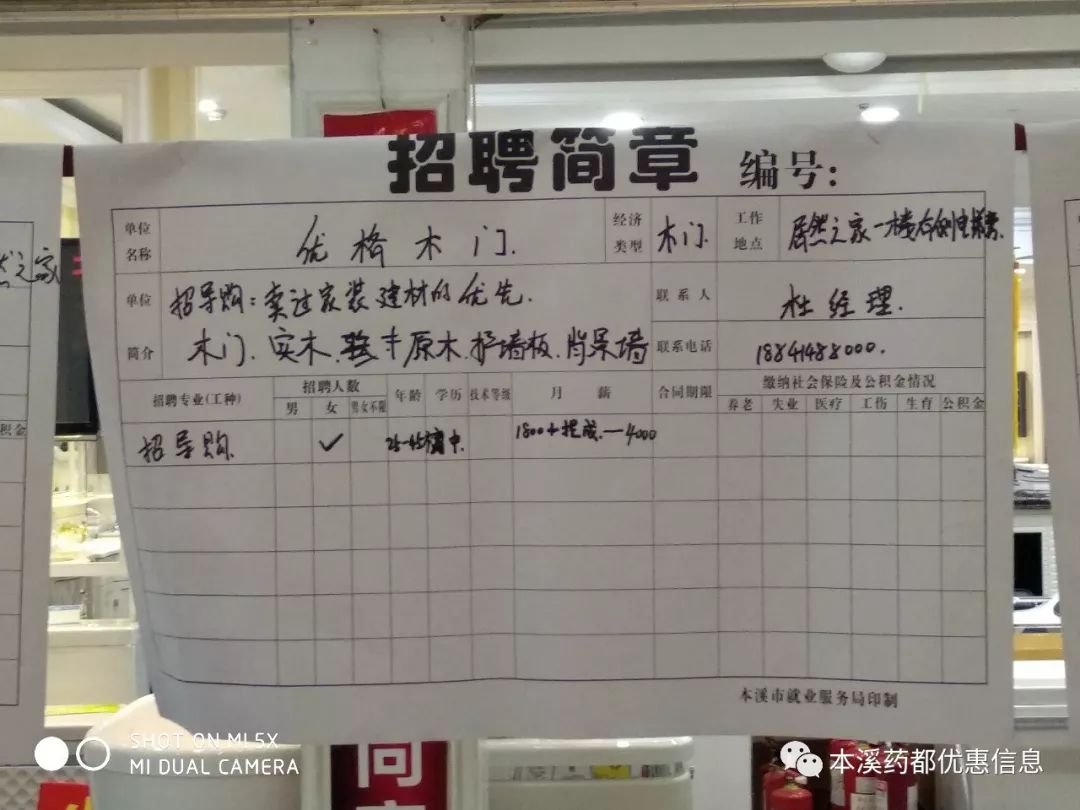 招聘简章 编号:
单位名称 优格木门. 经济类型 木门. 工作地点 居然之家一楼右侧电梯旁
然之家
单位简介 招导购:卖过家装建材的优先.
木门.实木. 原木.护墙板.背景墙
联系人 杜经理.
联系电话 18841488000.
招聘专业(工种) 招聘人数 年龄 学历 技术等级 月薪 合同期限 缴纳社会保险及公积金情况
男 女 男女不限 养老 失业 医疗 工伤 生育 公积金
积金
招导购. ✓ 高中. 1800+提成.一4000
本溪市就业服务局印制
SHOT ON MI 5X
MI DUAL CAMERA
本溪药都优惠信息
简